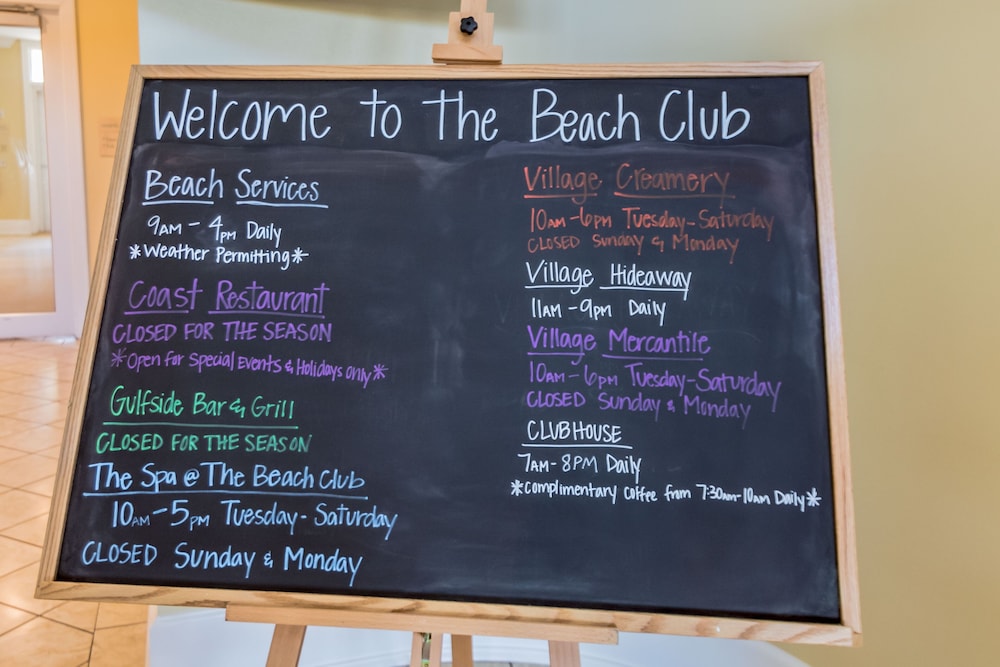 Welcome to The Beach Club
Beach Services
9AM - 4PM Daily
*Weather Permitting*
Coast Restaurant
CLOSED FOR THE SEASON
*Open for Special Events & Holidays Only*
Gulfside Bar & Grill
CLOSED FOR THE SEASON
The Spa @ The Beach Club
10AM - 5PM Tuesday - Saturday
CLOSED Sunday & Monday
Village Creamery
10AM - 6PM Tuesday - Saturday
CLOSED Sunday & Monday
Village Hideaway
11AM - 9PM Daily
Village Mercantile
10AM - 6PM Tuesday - Saturday
CLOSED Sunday & Monday
CLUBHOUSE
7AM - 8PM Daily
*Complimentary Coffee from 7:30AM - 10AM Daily*